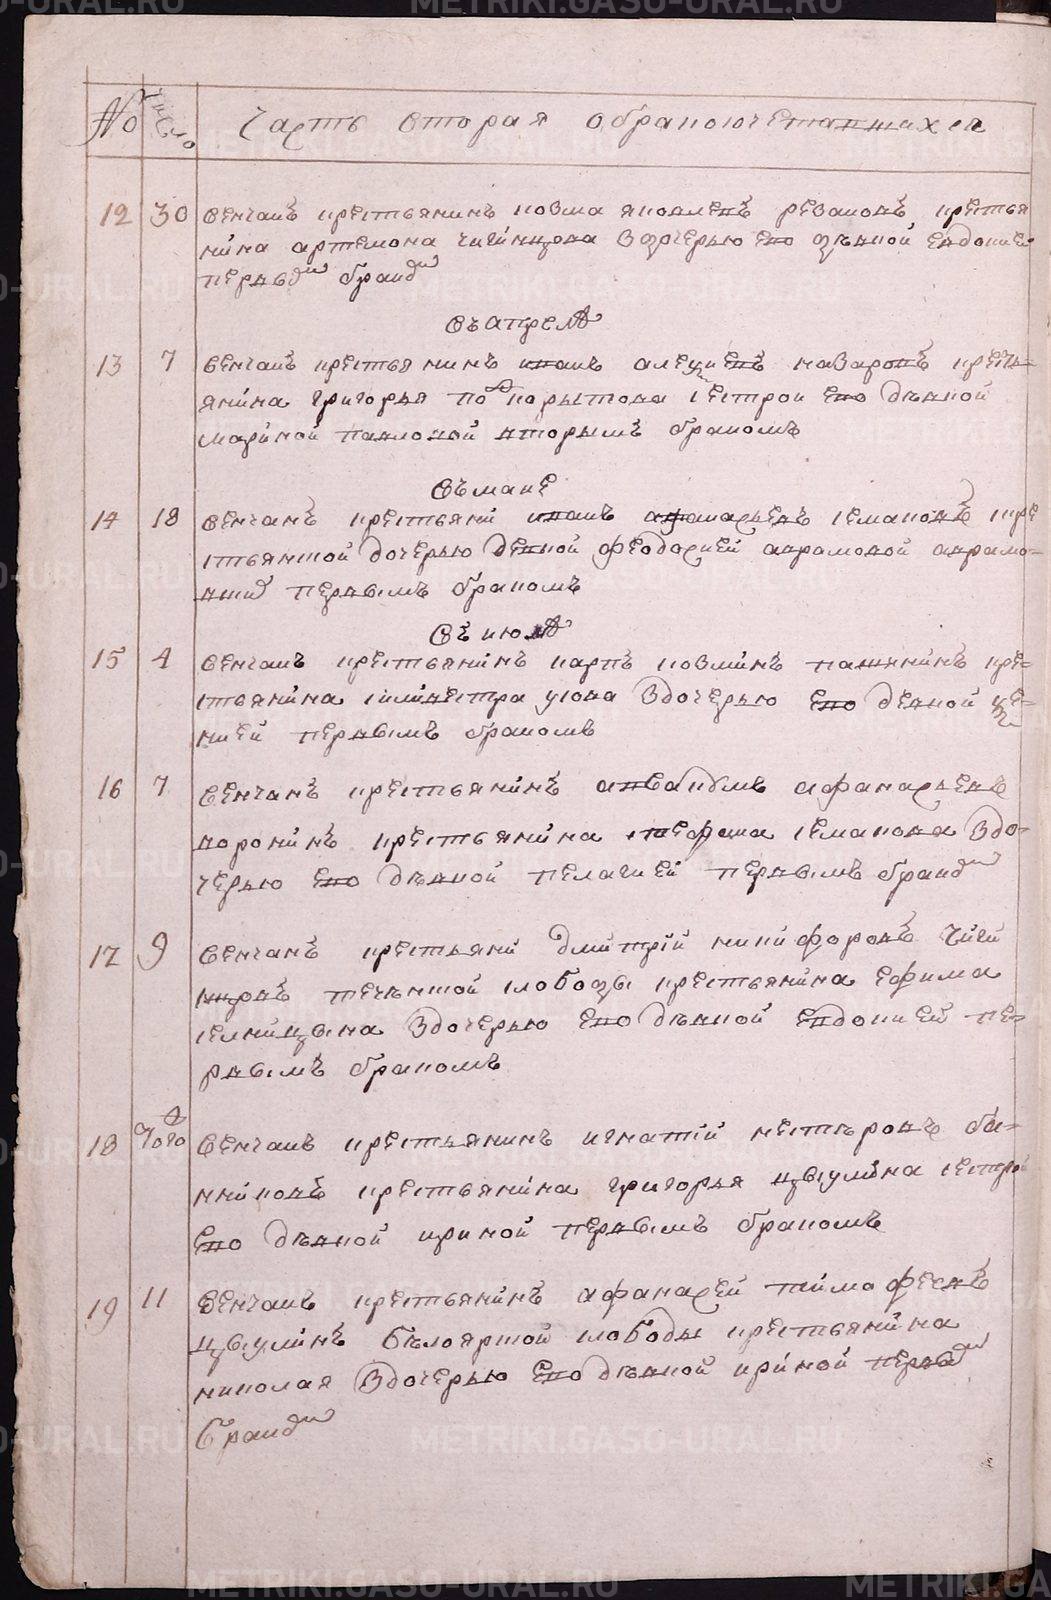 № Число Часть вторая обракосочетавшихся
12 30 венчанъ крестьянинъ козма яковлевъ резановъ крестья
нина артемона чигинцова здочерью ево девкой евдокией
первым браком
въ апреле
13 7 венчанъ крестьянинъ иванъ алексеевъ назаровъ кресть-
янина григорья по корытова сестрой ево девкой
мариной павловой вторымъ бракомъ
въ маие
14 18 венчанъ крестьяни иванъ афанасьевъ семаковъ кре
стьянской дочерью девкой феодосией аврамовой аврамо-
первымъ бракомъ
въ июле
15 4 венчанъ крестьянинъ карпъ козминъ пашнинъ кре-
стьянина силивестра усова здочерью ево девкой ксе-
нией первымъ бракомъ
16 7 венчанъ крестьянинъ аввакумъ афанасьевъ
воронинъ крестьянина стефана семакова здо-
черью ево девкой пелагией первымъ браком
17 9 венчанъ крестьяни дмитрий никифоровъ чиги
нцовъ теченской слободы крестьянина ефима
селницына здочерью ево девкой евдокией пе-
рвымъ бракомъ
18 того венчанъ крестьянинъ игнатий нестеровъ ба-
нниковъ крестьянина григорья цывулина сестрой
ево девкой ириной первымъ бракомъ
19 11 венчанъ крестьянинъ афанасей тимофеевъ
цывулинъ белоярской слободы крестьянина
николая здочерью ево девкой ириной первым
браком
METRIKI.GASO-URAL.RU